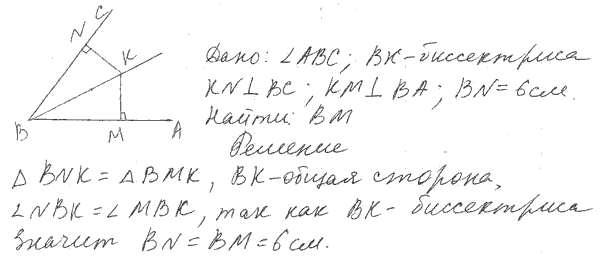 C
N
K
B
M
A
Дано: ∠ABC; BK-биссектриса
KN⊥BC; KM⊥BA; BN=6см.
Найти: BM
Решение
△ BNK = △BMK, BK-общая сторона,
∠NBK=∠MBK, так как BK- биссектриса
Значит BN = BM = 6см.